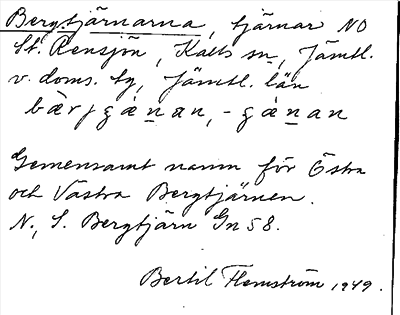 Bergtjärnarna, tjärnar NO
St. Rensjön, Kalls sn, Jämtl.
v. doms. tg, Jämtl. län
bæ̀rjgànan, -gànan
Gemensamt namn för Östra
och Västra Bergtjärnen.
N., S. Bergtjärn Gn 58.
Bertil Flemström 1949.